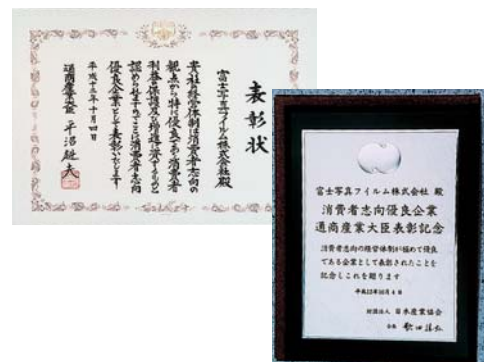 表彰状
富士写真フイルム株式会社殿
貴社の経営体制は消費者志向の
観点から特に優良であり消費者
利益の保護及び増進に資するものと
認められますのでここに消費者志向
優良企業として表彰いたします
平成十二年十月四日
通商産業大臣 平沼赳夫
富士写真フイルム株式会社 殿
消費者志向優良企業
通商産業大臣表彰記念
消費者志向の経営体制が極めて優良
である企業として表彰されたことを
記念しこれを贈ります
平成12年10月4日
財団法人 日本産業協会
会長 歌田勝弘